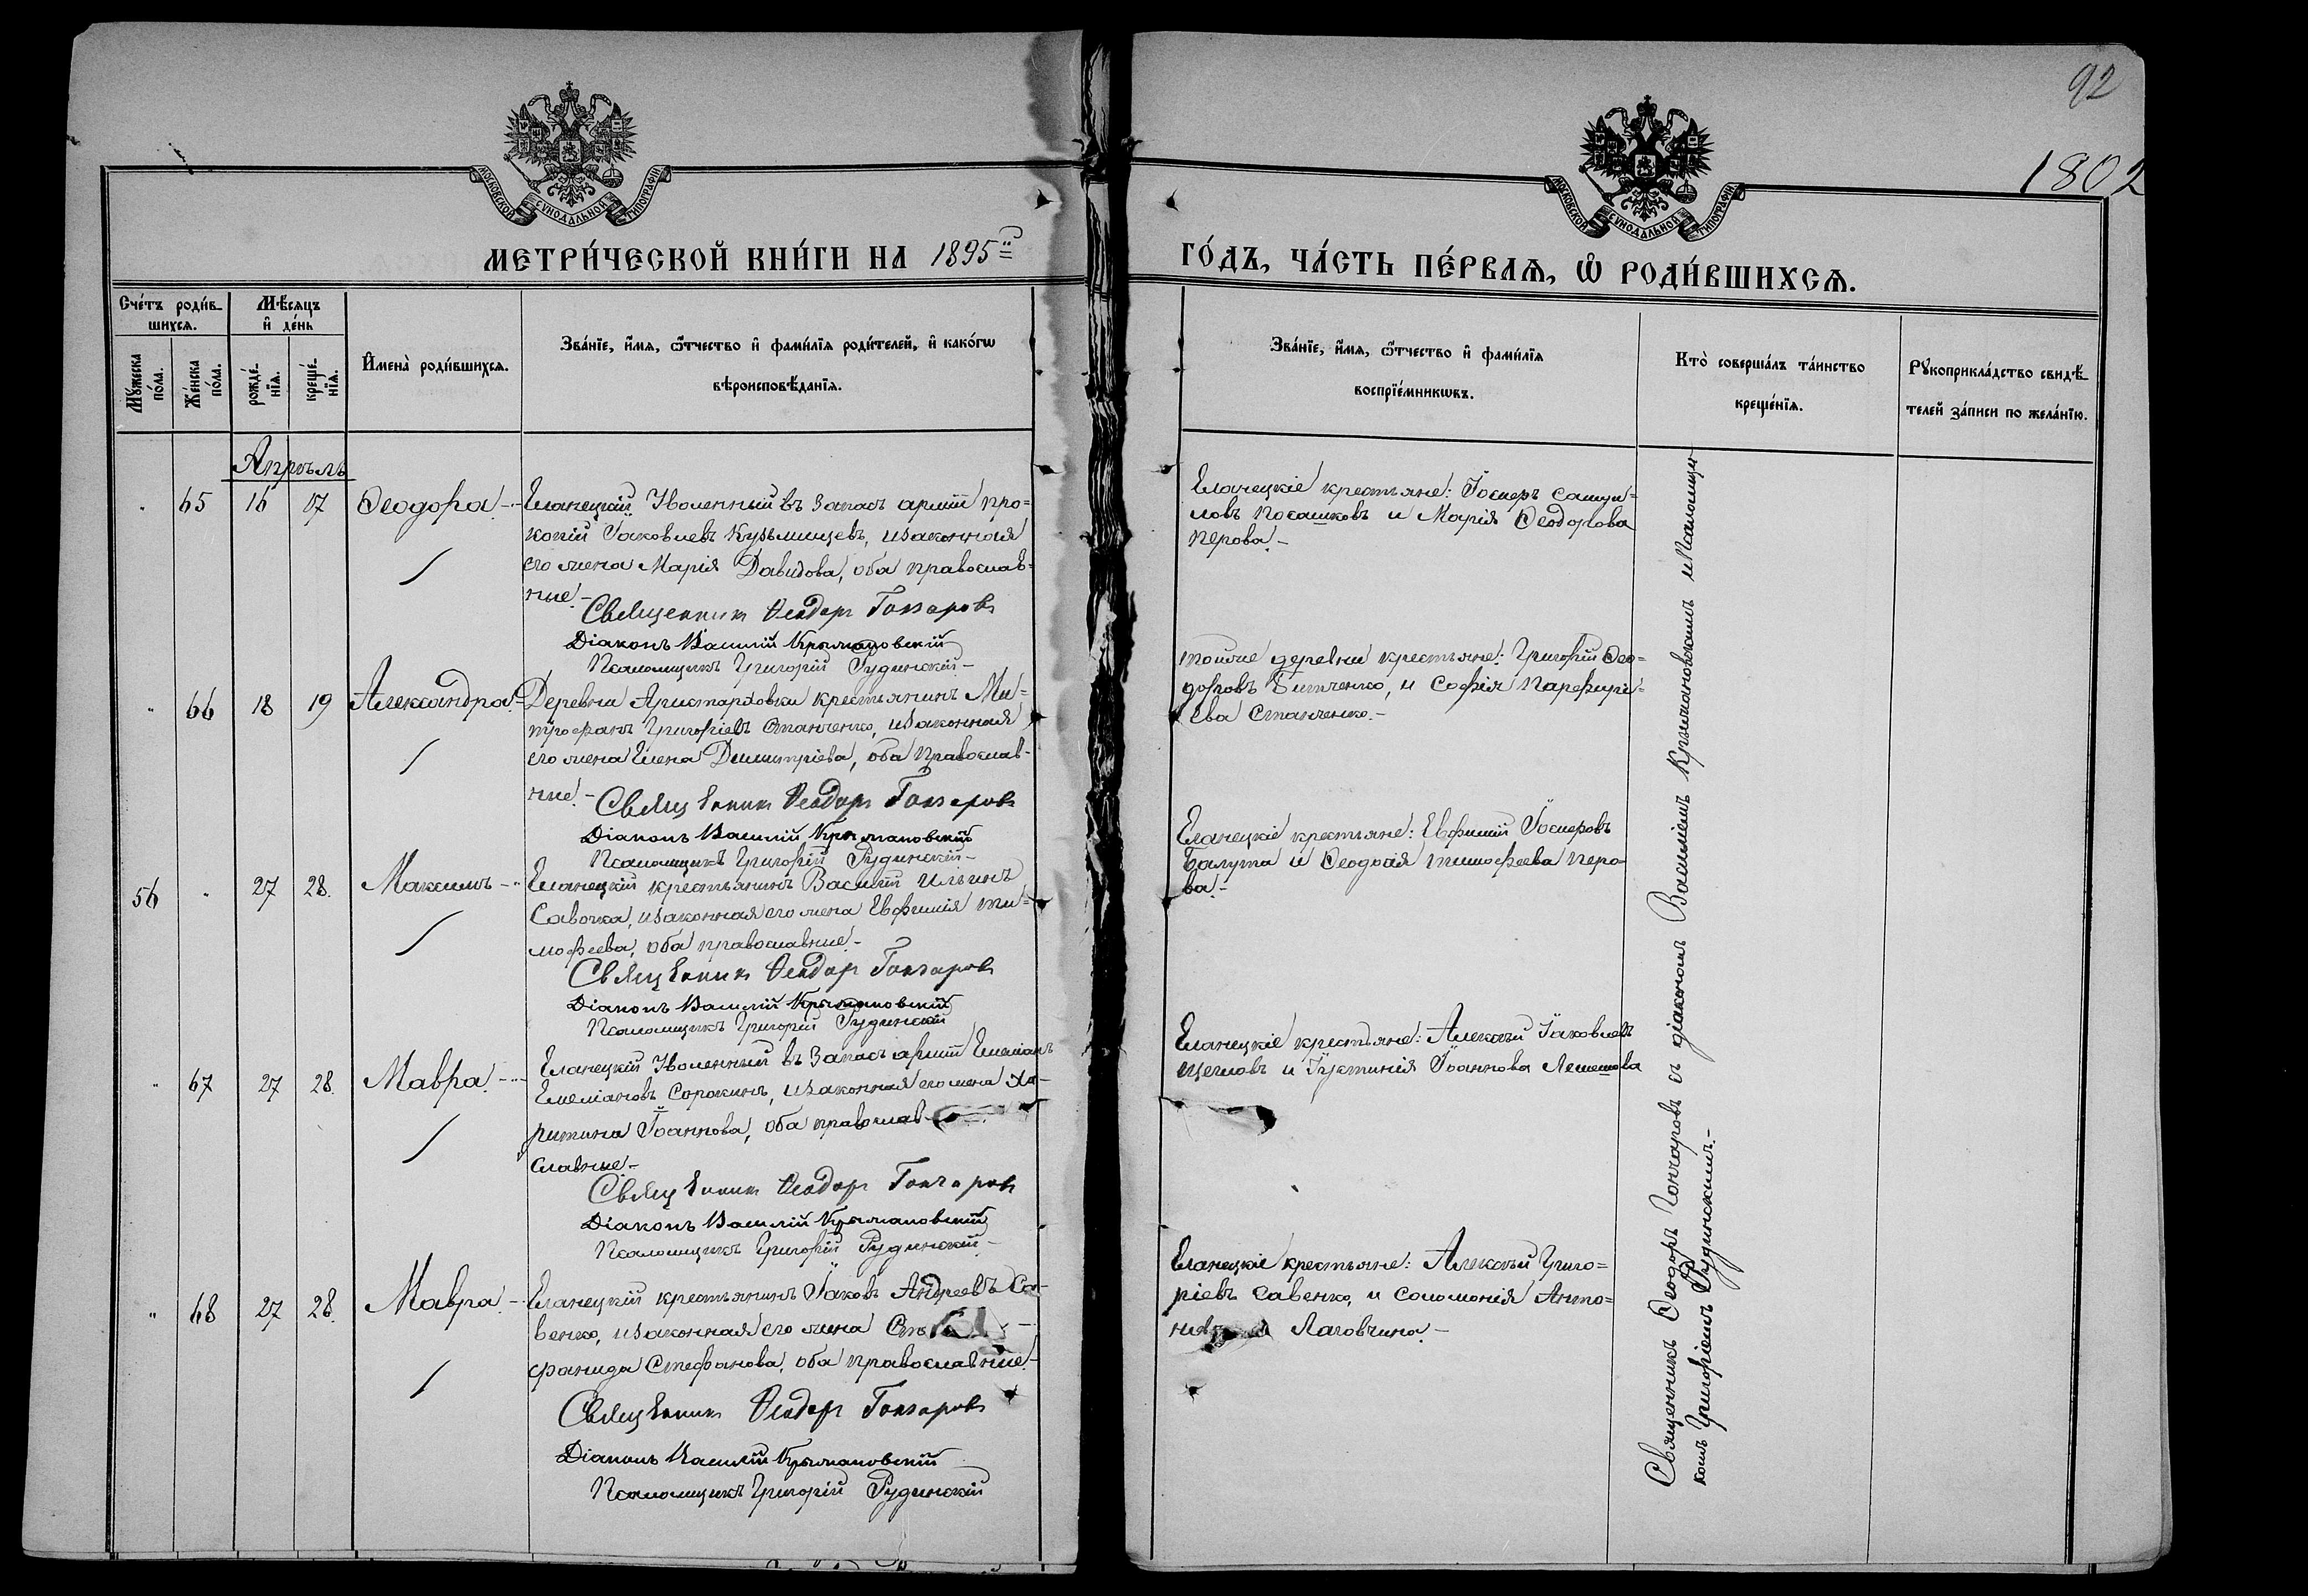 92
1802
МОСКОВСКОЙ СѴНОДАЛЬНОЙ ТИПОГРАФІИ
МОСКОВСКОЙ СѴНОДАЛЬНОЙ ТИПОГРАФІИ
МЕТРИ́ЧЕСКОЙ КНИ́ГИ НА 1895й
ГО́ДЪ, ЧА́СТЬ ПЕ́РВАѦ, Ѡ҆ РОДИ́ВШИХСѦ.
Счéтъ роди́в-
шихсѧ.
Мѣ́сѧцъ
и҆ де́нь
Мꙋ́жеска
по́ла.
Же́нска
по́ла.
рожде́-
нїѧ.
креще́-
нїѧ.
И҆мена̀ роди́вшихсѧ.
Зва́нїе, и҆́мѧ, ѻ҆́тчество и҆ фами́лїѧ роди́телей, и҆ како́гѡ
вѣроисповѣ́данїѧ.
Зва́нїе, и҆́мѧ, ѻ҆́тчество и҆ фами́лїѧ
воспрїе́мникѡвъ.
Кто̀ соверша́лъ та́инство
креще́нїѧ.
Рꙋкоприкла́дство свидѣ́-
телей за́писи по жела́нїю.
Апрѣль
" 65 16 17 Ѳеодора. - Еланецкій Уволенный въ Запасъ арміи Про=
копій Іаковлевъ Кузьминцевъ, и законная
его жена Марія Давидова, оба православ-
ные. -
Священникъ Ѳеодоръ Гончаровъ
Діаконъ Василій Крыжановскій
Псаломщикъ Григорій Рудинскій -
Еланецкіе крестьяне: Іосифъ Самуи=
ловъ Посашковъ и Марія Ѳеодорова
Перова. -
" 66 18 19 Александра. - Деревни Аристарховки крестьянинъ Ми=
трофанъ Григоріевъ Станченко, и законная
его жена Елена Димитріева, оба Православ-
ные. -
Священникъ Ѳеодоръ Гончаровъ
Діаконъ Василій Крыжановскій
Псаломщикъ Григорій Рудинскій -
тойже деревни крестьяне: Григорій Ѳео=
доровъ Битченко, и Софія Парфирі=
ева Станченко. -
56 " 27 28. Максимъ - Еланецкій крестьянинъ Василій Ильинъ
Савочка, и законная его жена Евфимія Ти=
мофеева, оба православные. -
Священникъ Ѳеодоръ Гончаровъ
Діаконъ Василій Крыжановскій
Псаломщикъ Григорій Рудинскій
Еланецкіе крестьяне: Евфимій Іосифовъ
Балута и Ѳеодосія Тимофеева Перо-
ва. -
" 67 27 28. Мавра. - Еланецкій Уволенный въ Запасъ арміи Емеліанъ
Емеліановъ Сорокинъ, и законная его жена Ха-
ритина Іоаннова, оба православ
славные. -
Священникъ Ѳеодоръ Гончаровъ
Діаконъ Василій Крыжановскій
Псаломщикъ Григорій Рудинскій. -
Еланецкіе крестьяне: Алексѣй Іаковлевъ
Щегловъ и Іустинія Іоаннова
" 68 27 28. Мавра. - Еланецкій крестьянинъ Іаковъ Андреевъ Са-
венко, и законная его жена
фанида Стефанова, оба православные. -
Священникъ Ѳеодоръ Гончаровъ
Діаконъ Василій Крыжановскій
Псаломщикъ Григорій Рудинскій
Еланецкіе крестьяне: Алексѣй Григо=
ріевъ Савенко, и Соломонія Анто=
Лаговчина. -
Священникъ Ѳеодоръ Гончаровъ съ діакономъ Василіемъ Крыжановскимъ и Псаломщи-
комъ Григоріемъ Рудинскимъ. -